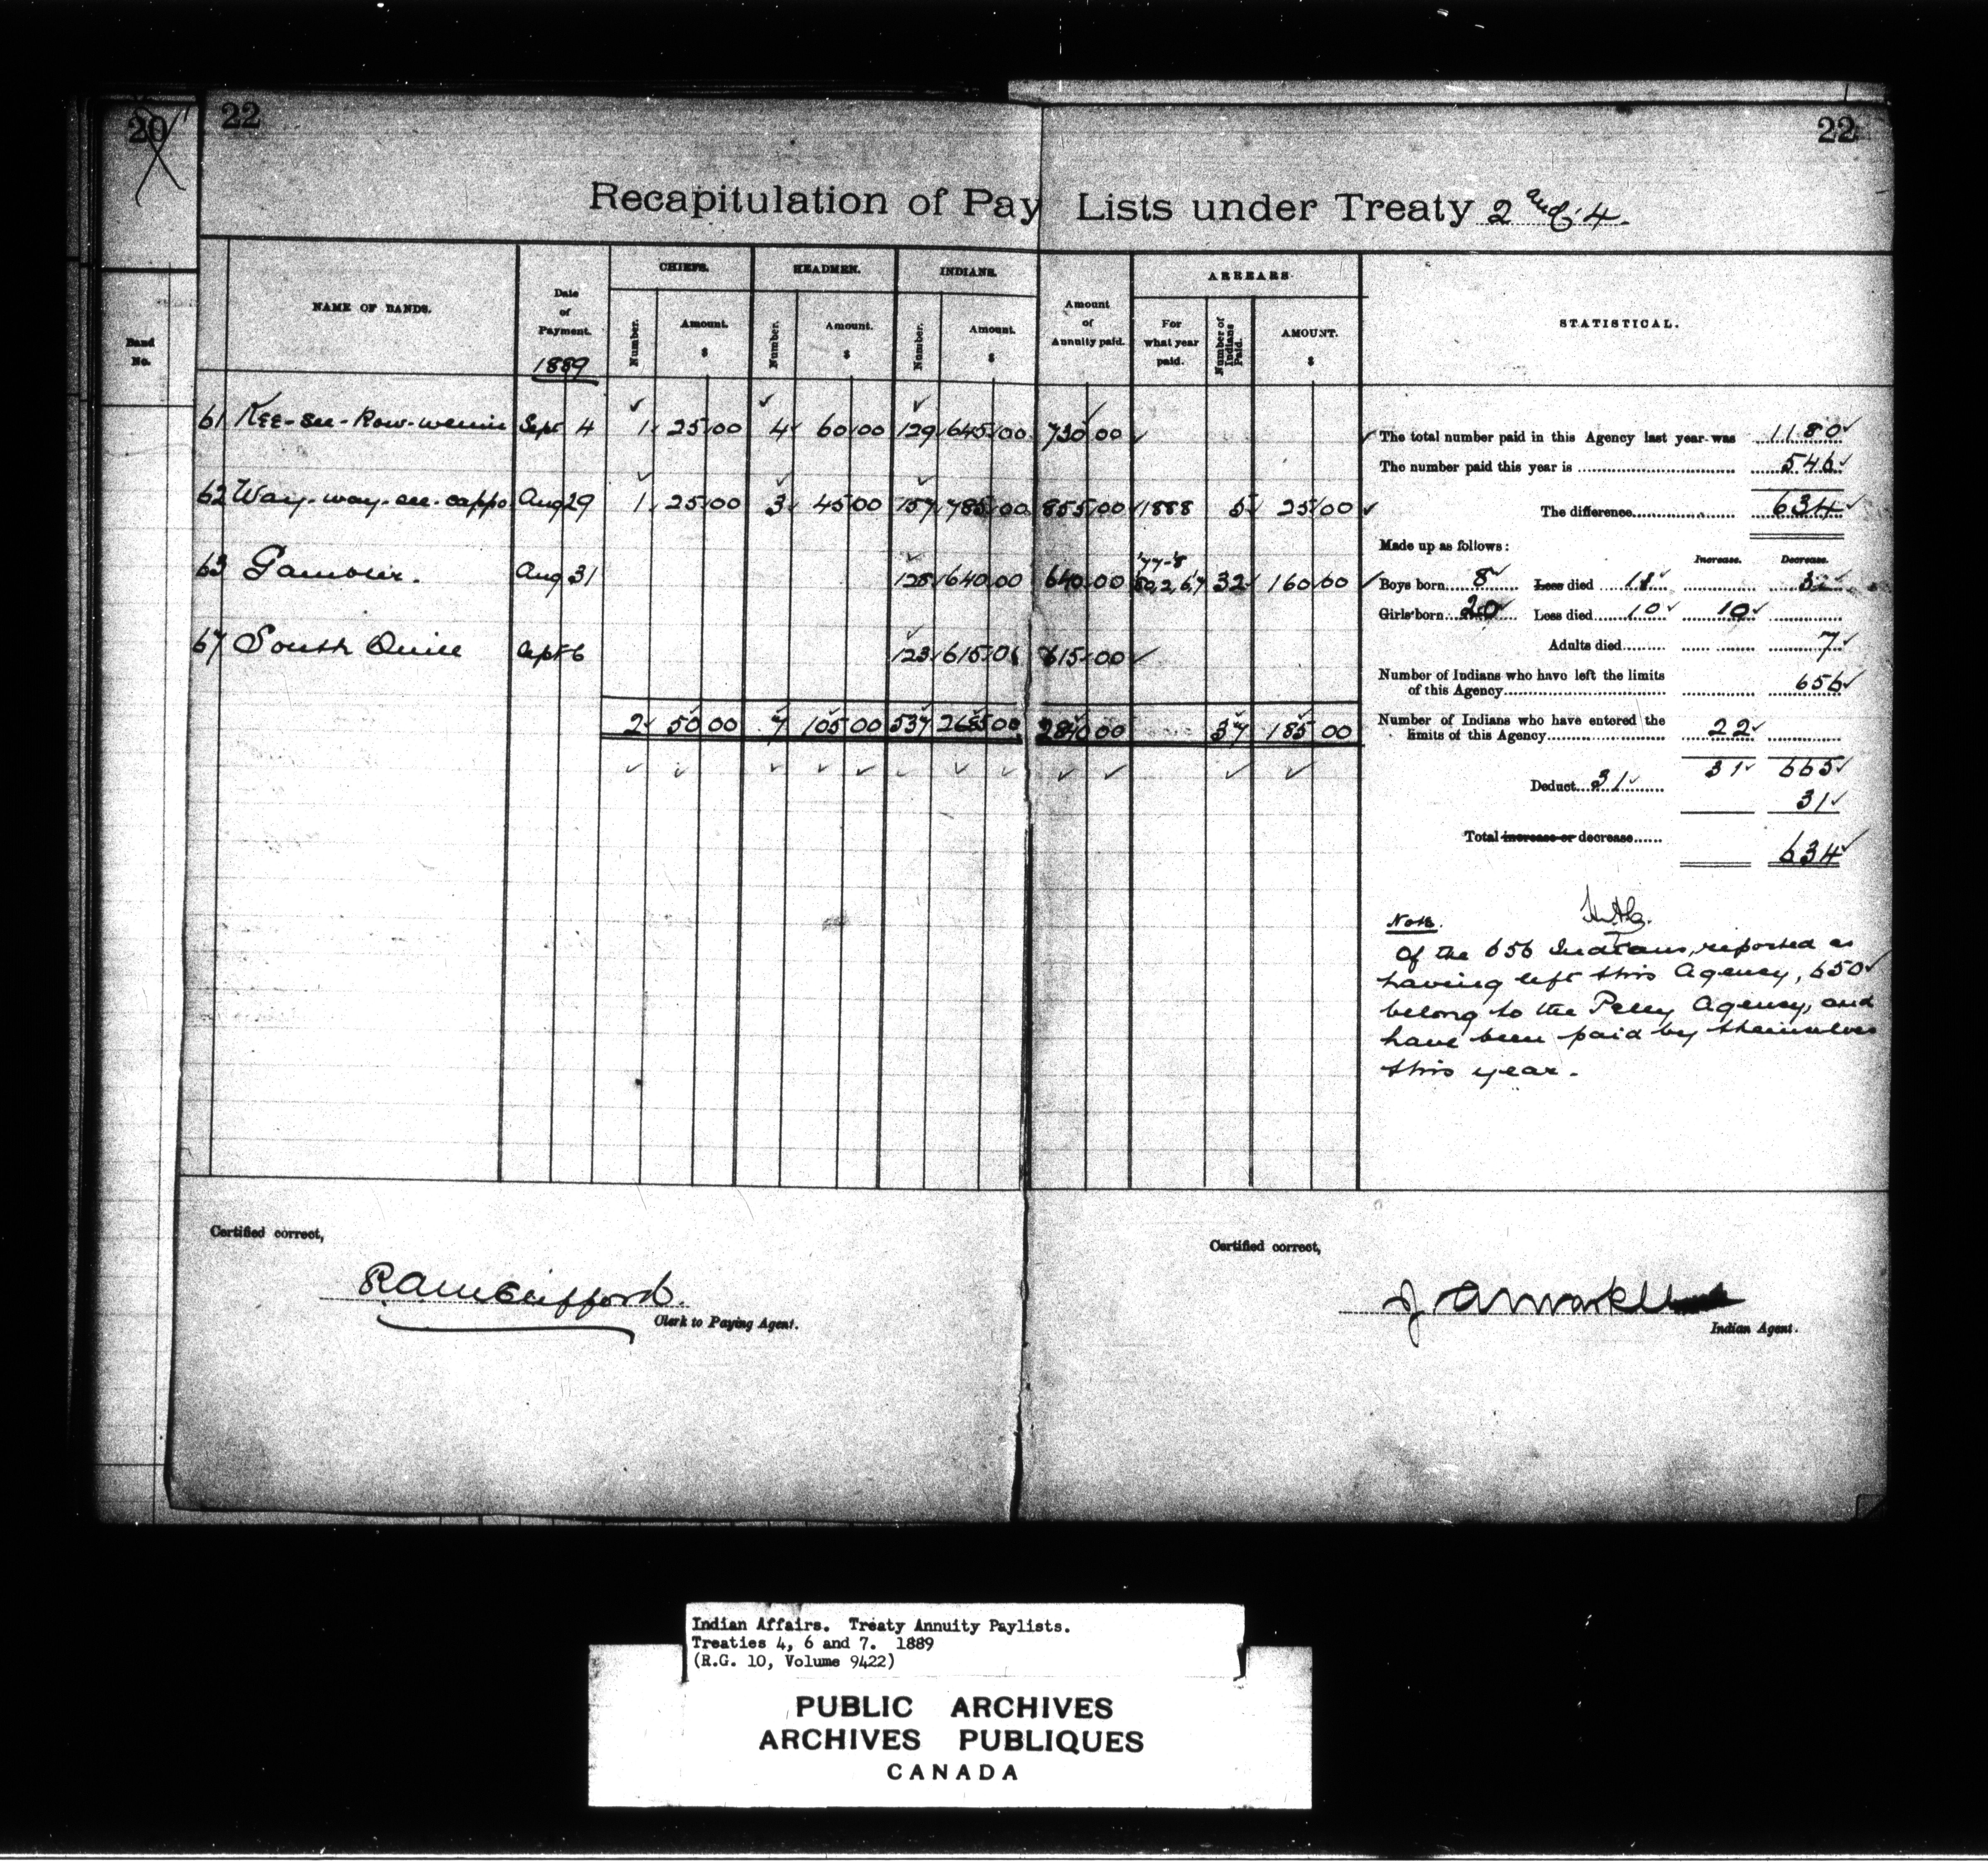 20
22
22
Recapitulation of Pay Lists under Treaty 2 and 4
Band No.
NAME OF BANDS.
Date of Payment. 1889
CHIEFS.
Number. Amount. $
HEADMEN.
Number. Amount. $
INDIANS.
Number. Amount. $
Amount of Annuity paid.
ARREARS
For what year paid.
Number of Indians Paid.
AMOUNT. $
STATISTICAL.
61 Kee-see-kow-wenin Sept 4 1 25 00 4 60 00 129 645 00 730 00
62 Way-way-see-cappo Aug 29 1 25 00 3 45 00 157 785 00 855 00 1888 5 25 00
63 Gambler. Aug 31 128 640 00 640 00 32 160 00
67 South Quill Sept 6 123 615 00 615 00
2 50 00 7 105 00 537 2685 00 2840 00 37 185 00
The total number paid in this Agency last year was 1180
The number paid this year is 546
The difference 634
Made up as follows:
Increase. Decrease.
Boys born 8 Less died
Girls born 20 Less died 10 10
Adults died 7
Number of Indians who have left the limits
of this Agency 656
Number of Indians who have entered the
limits of this Agency 22
31 665
Deduct 31
31
Total increase or decrease 634
Note.
Of the 656 Indians, reported as
having left this Agency, 650
belong to the Pelly Agency, and
have been paid by themselves
this year.
Certified correct,
Clerk to Paying Agent.
Certified correct,
J A Markle
Indian Agent.
Indian Affairs. Treaty Annuity Paylists.
Treaties 4, 6 and 7. 1889
(R.G. 10, Volume 9422)
PUBLIC ARCHIVES
ARCHIVES PUBLIQUES
CANADA